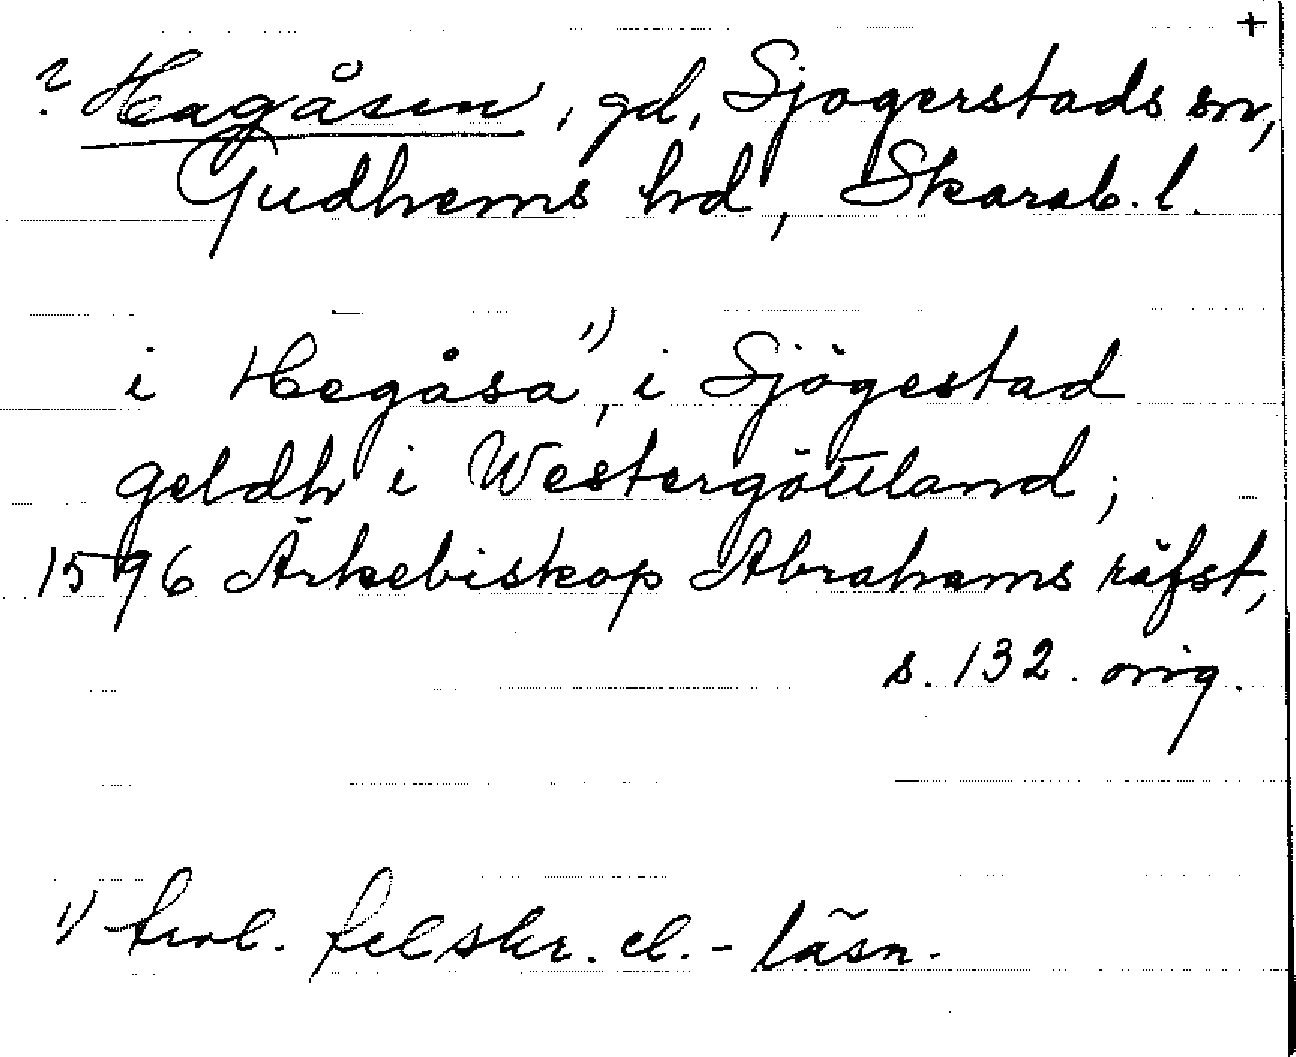 +
? Hagåsen, gd, Sjogerstads sn,
Gudhems hd, Skarab. l.
i Hegåsa¹⁾, i Sjögestad
geldh i Westergöttland;
1596 Ärkebiskop Abrahams räfst,
s. 132. orig.
¹⁾ trol. felskr. el. - läsn.